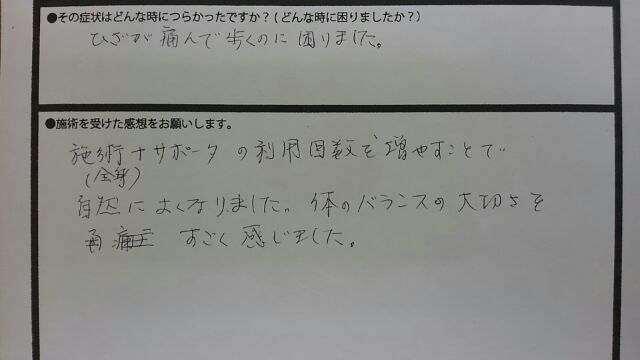 ●その症状はどんな時につらかったですか？(どんな時に困りましたか？)
ひざが痛んで歩くのに困りました。
●施術を受けた感想をお願いします。
施術＋サポータの利用回数を増やすことで
(全身)
自然によくなりました。体のバランスの大切さを
すごく感じました。